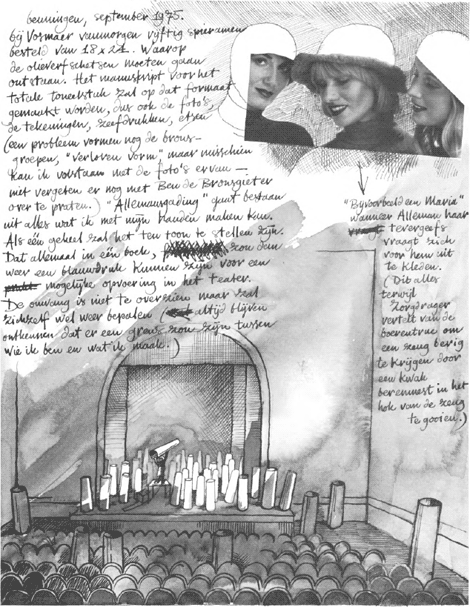 beuningen, september 1975.
bij Vormaer vanmorgen vijftig spieramen
besteld van 18 x 24. Waarop
de olieverfschetsen moeten gaan
ontstaan. Het manuskript voor het
totale toneelstuk zal op dat formaat
gemaakt worden, dus ook de foto's,
de tekeningen, zeefdrukken, etsen
(een probleem vormen nog de brons-
groepen, "verloren vorm", maar misschien
kan ik volstaan met de foto's ervan —
niet vergeten er nog met Ben de Bronsgieter
over te praten.) "Allemansgading" gaat bestaan
uit alles wat ik met mijn handen maken kan.
Als één geheel zal het ten toon te stellen zijn.
Dat allemaal in één boek, zou dan
weer een blauwdruk kunnen zijn voor een
mogelijke opvoering in het teater.
De omvang is niet te overzien maar zal
zichzelf wel weer bepalen (altijd blijven
ontkennen dat er een grens zou zijn tussen
wie ik ben en wat ik maak.)
"Bijvoorbeeld een Maria"
wanneer Alleman haar
tevergeefs
vraagt zich
voor hem uit
te kleden.
(Dit alles
terwijl
Zorgdrager
vertelt van de
boerentrue om
een zeug berig
te krijgen door
een kwak
berenmest in het
hok van de zeug
te gooien.)